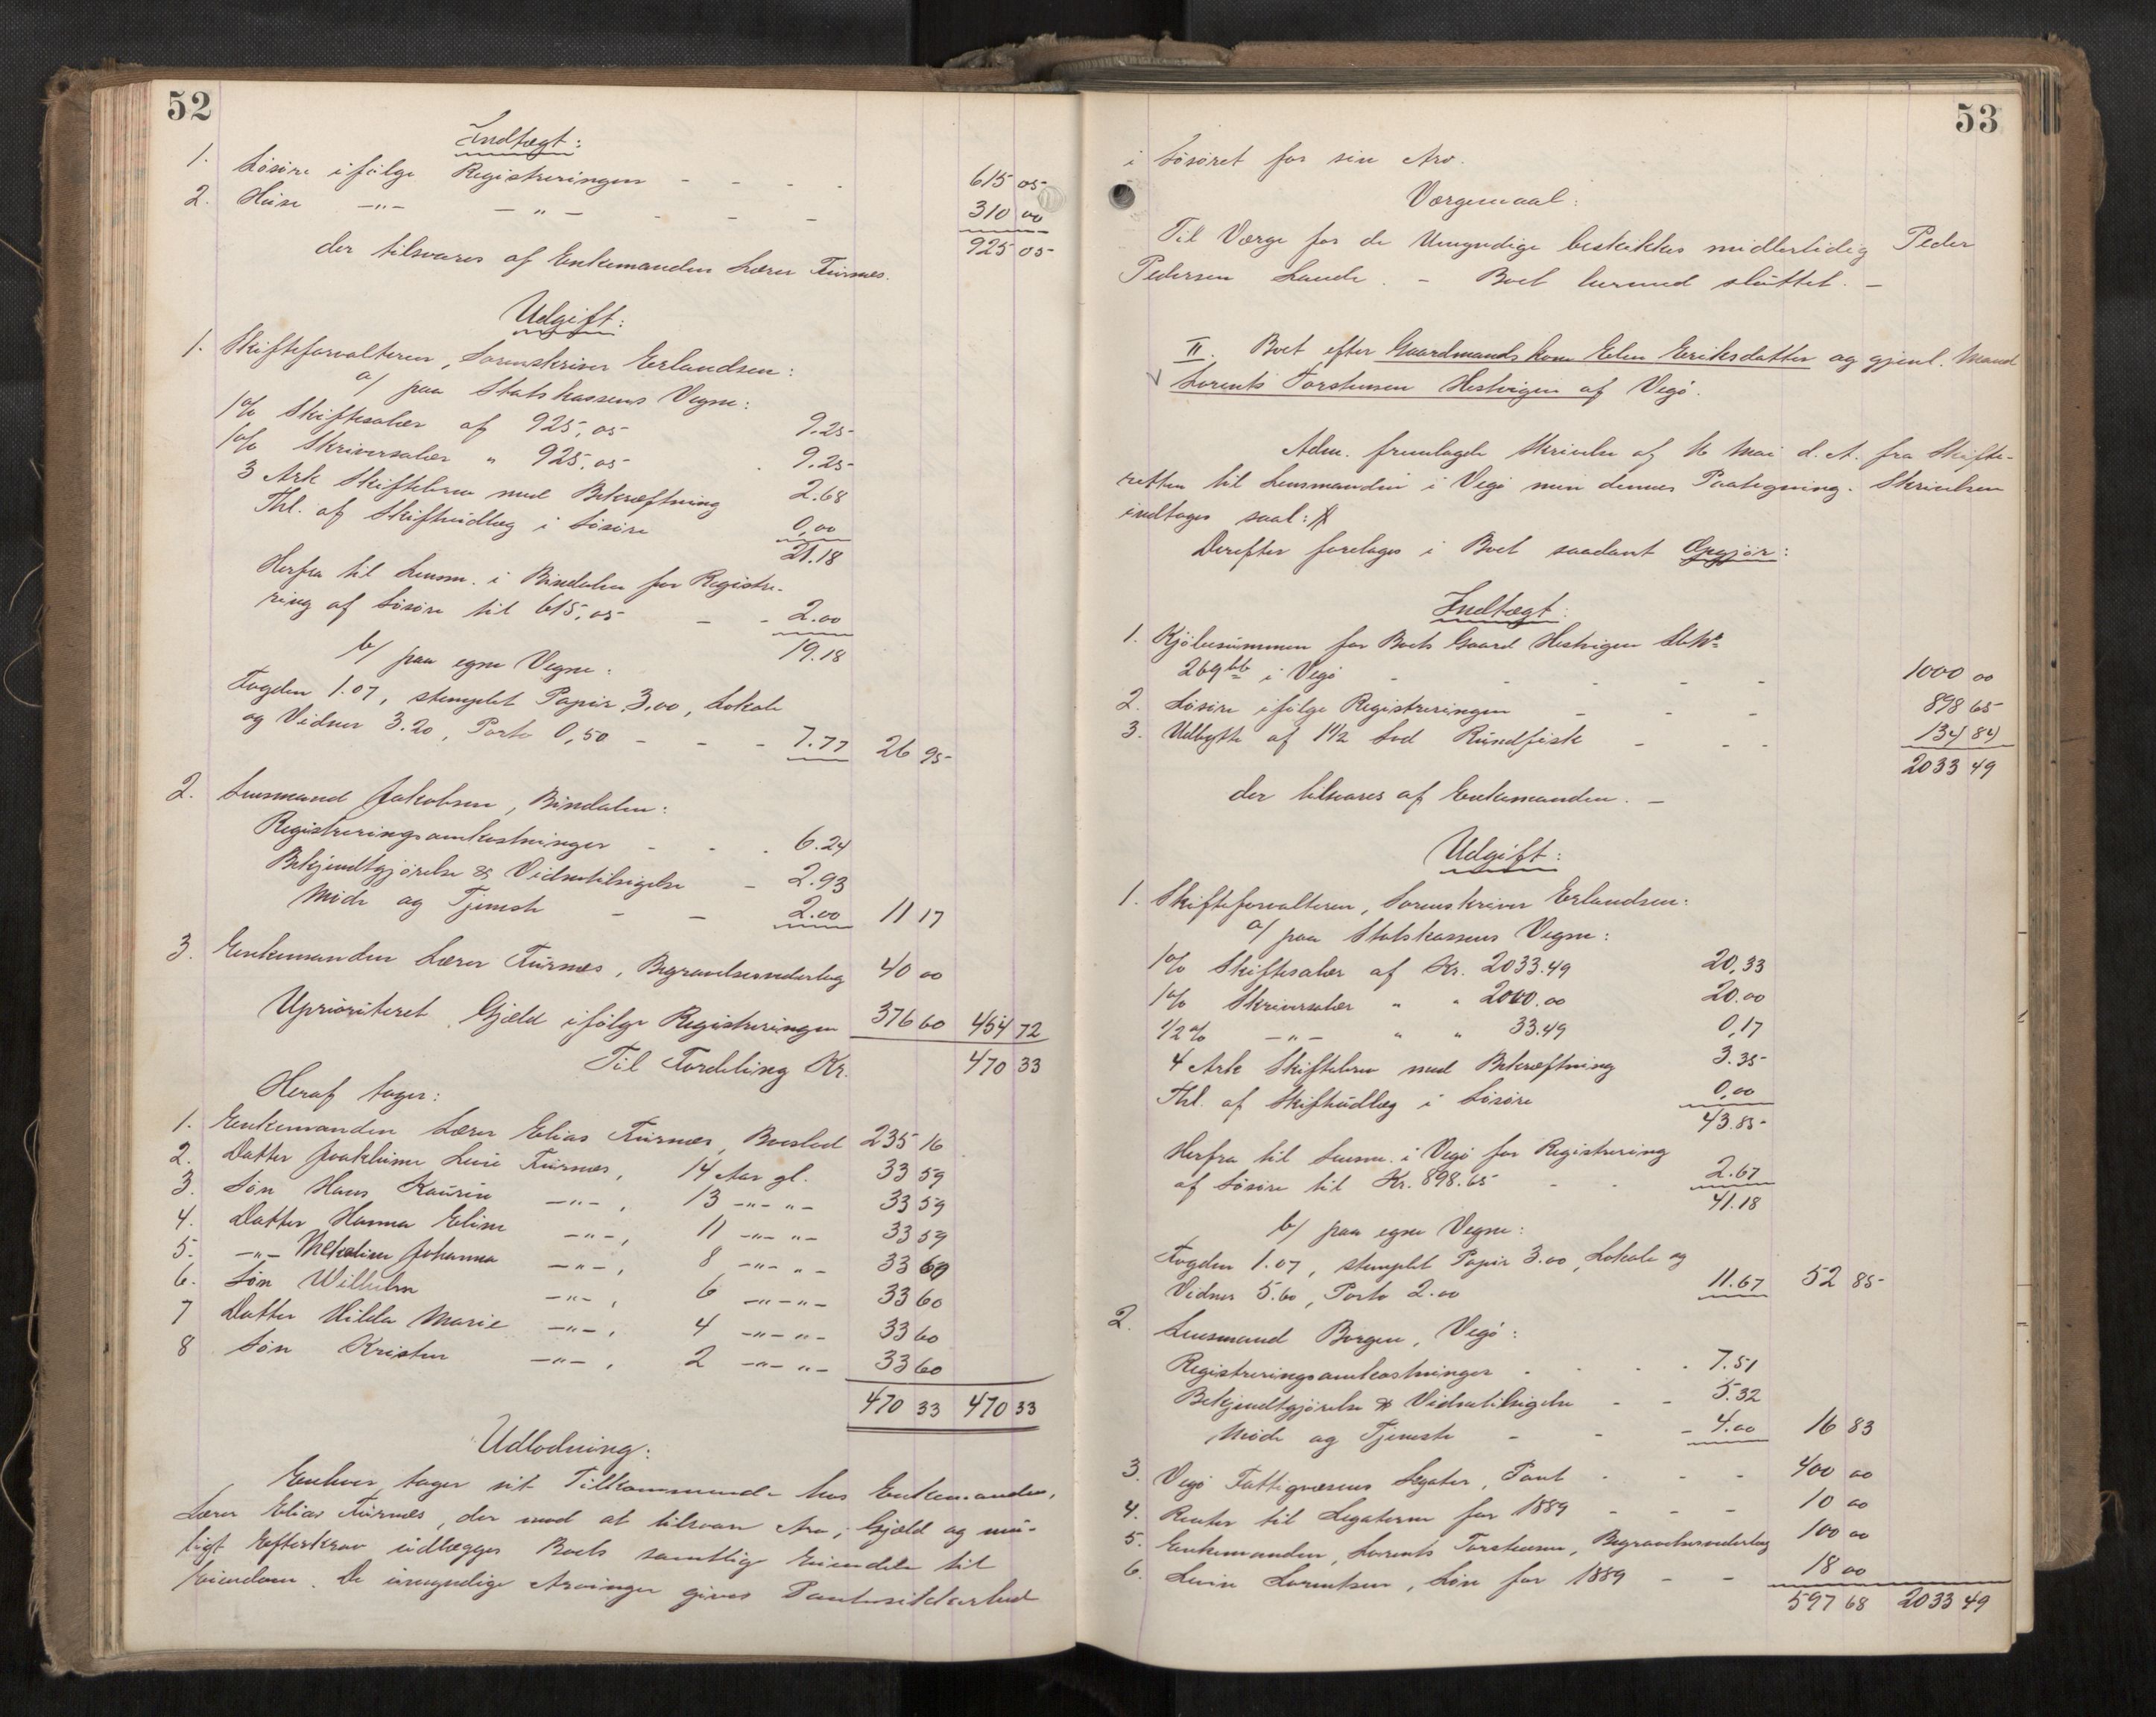 52
Indtægt:
1. Løsøre ifølge Registreringen - - - - 615 05
2. Huse -"- -"- - - - 310 00
925 05
der tilsvares af Enkemanden Lærer Furnes.
Udgift:
1. Skifteforvalteren, Sorenskriver Erlandsen:
a/ paa Statskassens Vegne:
1 % Skiftesalær af 925,05 9.25
1 % Skriversalær " 925,05 . 9.25
3 Ark Skiftebrev med Bekræftning 2.68
Thl. af Skifteudlæg i Løsøre 0,00
21.18
Herfra til Lensm. i Bindalen for Registre-
ring af Løsøre til 615,05 - - 2.00
19.18
b/ paa egne Vegne:
Fogden 1.07, stemplet Papir 3,00, Lokale
og Vidner 3.20, Porto 0,50 - - - 7.77 26 95
2. Lensmand Jakobsen, Bindalen:
Registreringsomkostninger - - . 6.24
Bekjendtgjørelse & Vidnetilsigelse - 2.93
Møde og Tjeneste - - 2.00 11 17
3. Enkemanden Lærer Furnes, Begravelsesvederlag 40 00
Uprioriteret Gjæld ifølge Registreringen 376 60 454 72
Til Fordeling Kr. 470 33
Heraf tager:
1. Enkemanden Lærer Elias Furnes, Boeslod 235 16
2. Datter Joakline Lene Furnes, 14 Aar gl. 33 59
3. Søn Hans Kaurin -"-, 13 -"- "- 33 59
4. Datter Hanna Eline -"-, 11 -"- "- 33 59
5. -"- Johanna -"-, 8 -"- "- 33 60
6. Søn Wilhelm -"-, 6 -"- "- 33 60
7 Datter Hilda Marie -"-, 4 -"- "- 33 60
8 Søn Kristen -"-, 2 -"- "- 33 60
470 33 470 33
Udlodning:
Enhver tager sit Tilkommende hos Enkemanden,
Lærer Elias Furnes, der mod at tilsvare Arv, Gjæld og mu-
ligt Efterkrav udlægges Boets samtlige Eiendele til
Eiendom. De umyndige Arvinger gives Pantesikkerhed
53
i Løsøret for sin Arv.
Værgemaal:
Til Værge for de Umyndige beskikkes midlertidig Peder
Pedersen Lande. - Boet hermed sluttet. -
II. Boet efter Gaardmandskone Elen Eriksdatter og gjenl. Mand
Lorents Torstensen Hestvigen af Vegø.
Adm. fremlagde Skrivelse af 16 Mai d. A. fra Skifte-
retten til Lensmanden i Vegø men dennes Paategning. Skrivelsen
indtages saal: #
Derefter foretages i Boet saadant Opgjør:
Indtægt:
1. Kjøbesummen for Boets Gaard Hestvigen Lb No
269 bb i Vegø - - - - - 1000 00
2. Løsøre ifølge Registreringen - - - 898 65
3. Udbytte af 1 1/2 Lod Rundfisk - - - 134 84
2033 49
der tilsvares af Enkemanden. -
Udgift:
1. Skifteforvalteren, Sorenskriver Erlandsen:
a/ paa Statskassens Vegne:
1 % Skiftesalær af Kr. 2033.49 20,33
1 % Skriversalær " " 2000.00 20.00
1/2 % -"- " " 33.49 0,17
4 Ark Skiftebrev med Bekræftning 3.35
Thl. af Skifteudlæg i Løsøre 0,00
43.85
Herfra til Lensm. i Vegø for Registrering
af Løsøre til Kr. 898.65 - - 2.67
41.18
b/ paa egne Vegne:
Fogden 1.07, stemplet Papir 3.00, Lokale og
Vidner 5.60, Porto 2.00 11.67 52 85
2. Lensmand Borgen, Vegø:
Registreringsomkostninger - - - . 7.51
Bekjendtgjørelse & Vidnetilsigelse - - 5.32
Møde og Tjeneste - - - 4.00 16 83
3. Vegø Fattigvæsens Legater, Pant - - - 400 00
4. Renter til Legaterne for 1889 - - - 10 00
5. Enkemanden, Lorents Torstensen, Begravelsesvederlag 100 00
6. Lorentsen, Løn for 1889 - - 18 00
597 68 2033 49